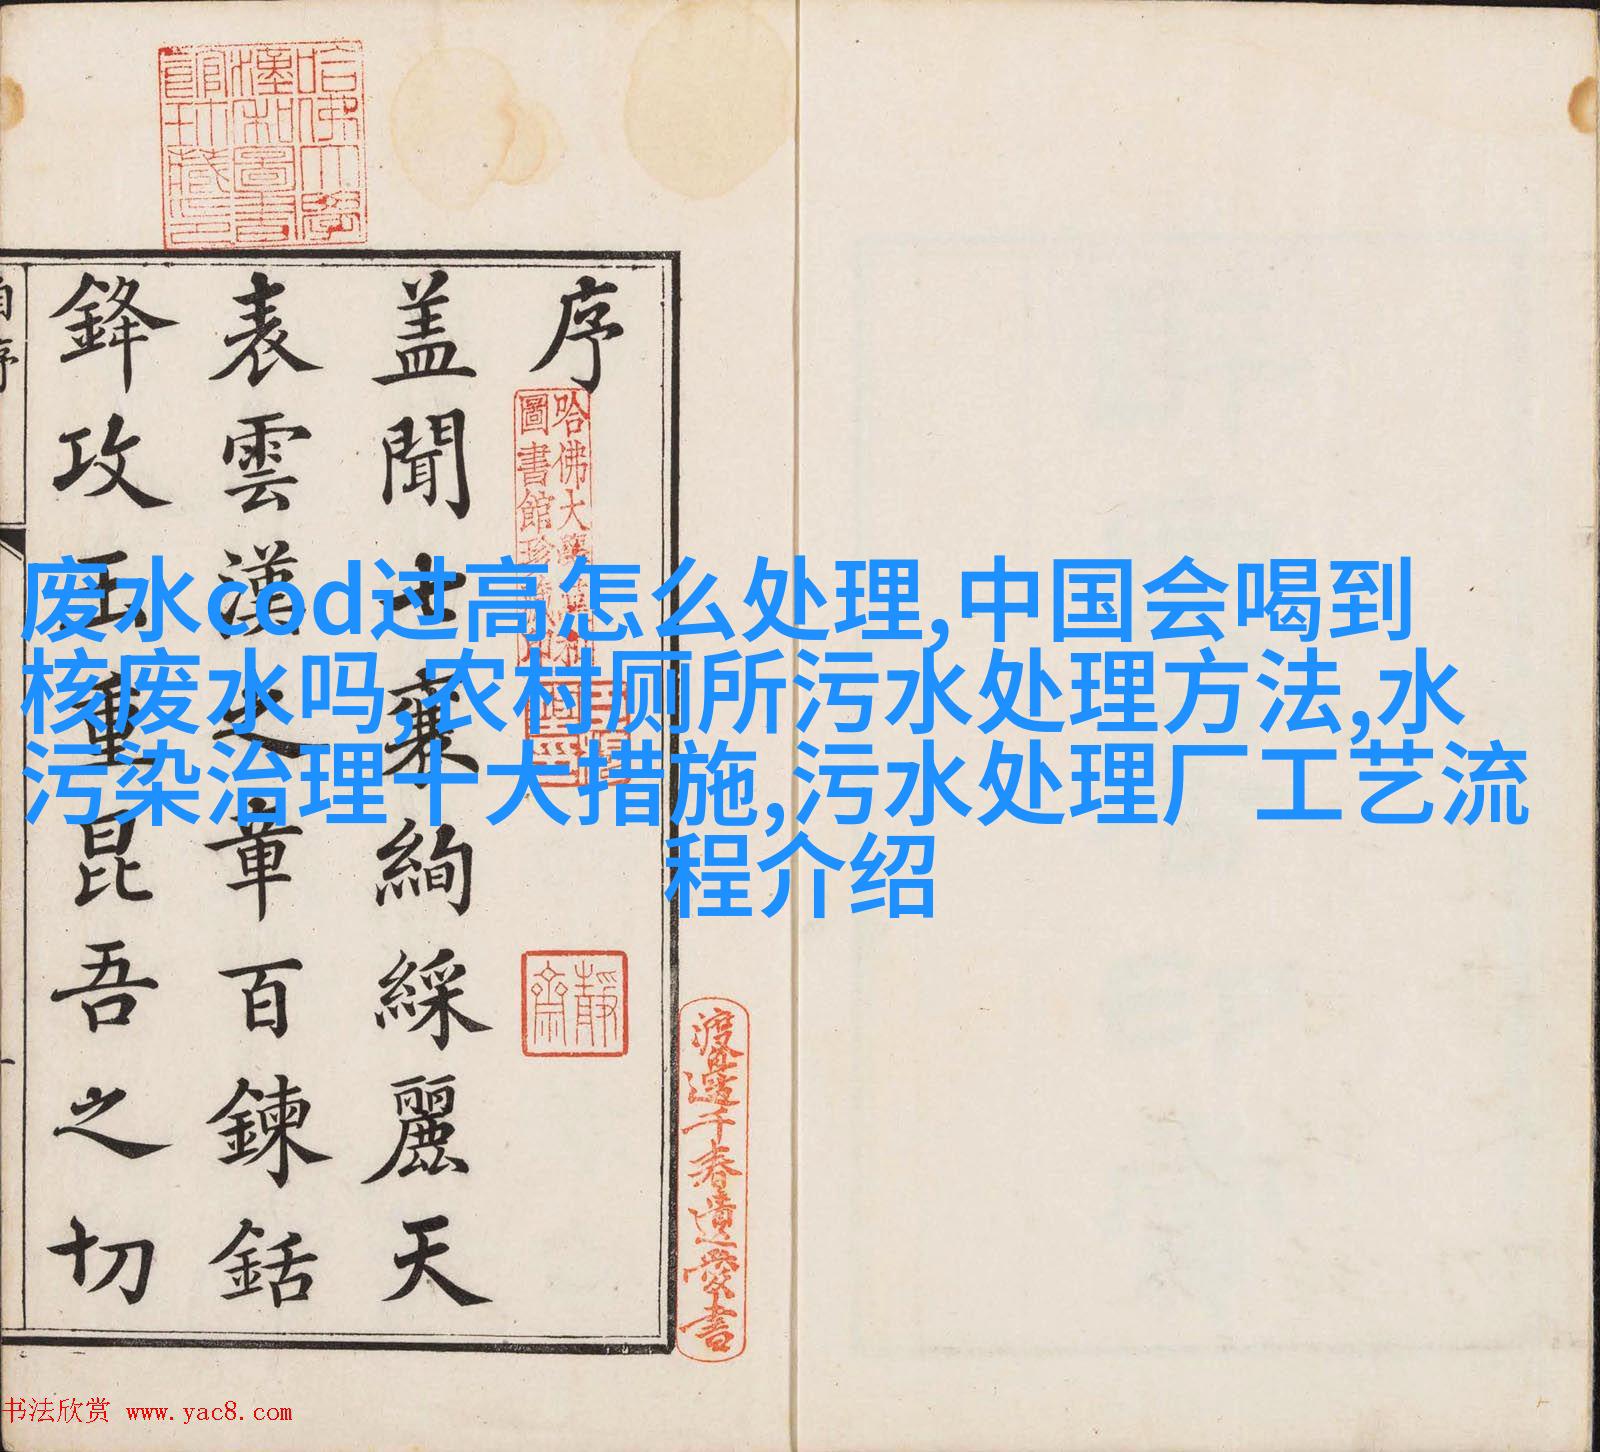 序
蓋聞士稟絢綵麗天
表雲漢之章百鍊銛
鋒攻玉重昆吾之切
自序
哈佛大學
漢和圖書
館珍藏印
哈佛大學漢和
圖書館珍藏印
靜齋
渡邊千春遺愛書
废水cod过高怎么处理,中国会喝到
核废水吗,农村厕所污水处理方法,水
污染治理十大措施,污水处理厂工艺流
程介绍
书法欣赏 www.yac8.com